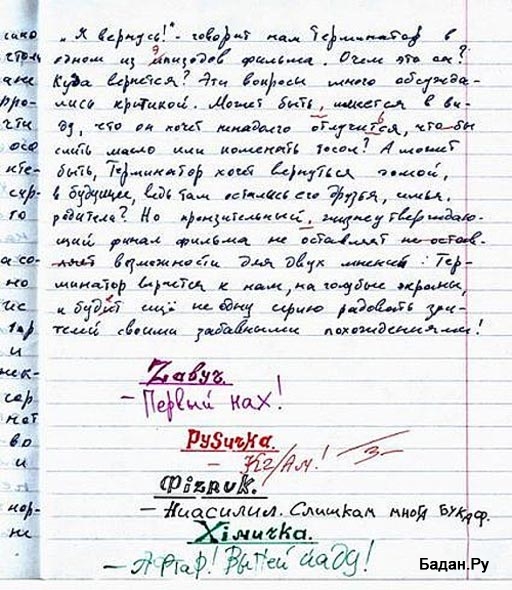 „Я вернусь!"- говорит нам Терминатор в
одном из эпизодов фильма. О чем это он?
Куда вернется? Эти вопросы много обсужда-
лись критикой. Может быть, имеется в ви-
ду, что он хочет ненадолго отлучится, что бы
слить масло или поменять тосол? А может
быть, Терминатор хочет вернуться домой,
в будущее, ведь там остались его друзья, семья,
родители? Но пронзительный, жизнеутверждаю-
щий финал фильма не оставляет не остав-
ляет возможности для двух мнений: Тер-
минатор вернется к нам, на голубые экраны,
и будет ещё не одну серию радовать зри-
телей своими забавными похождениями!
Zавуч.
- Первый нах!
РуSичка.
- КГ/Ам! 3-
Фizрuк.
- Ниасилил. Слишкам многа букаф.
Хiмичка.
- Аффтар! Выпей йаду!
Бадан.Ру